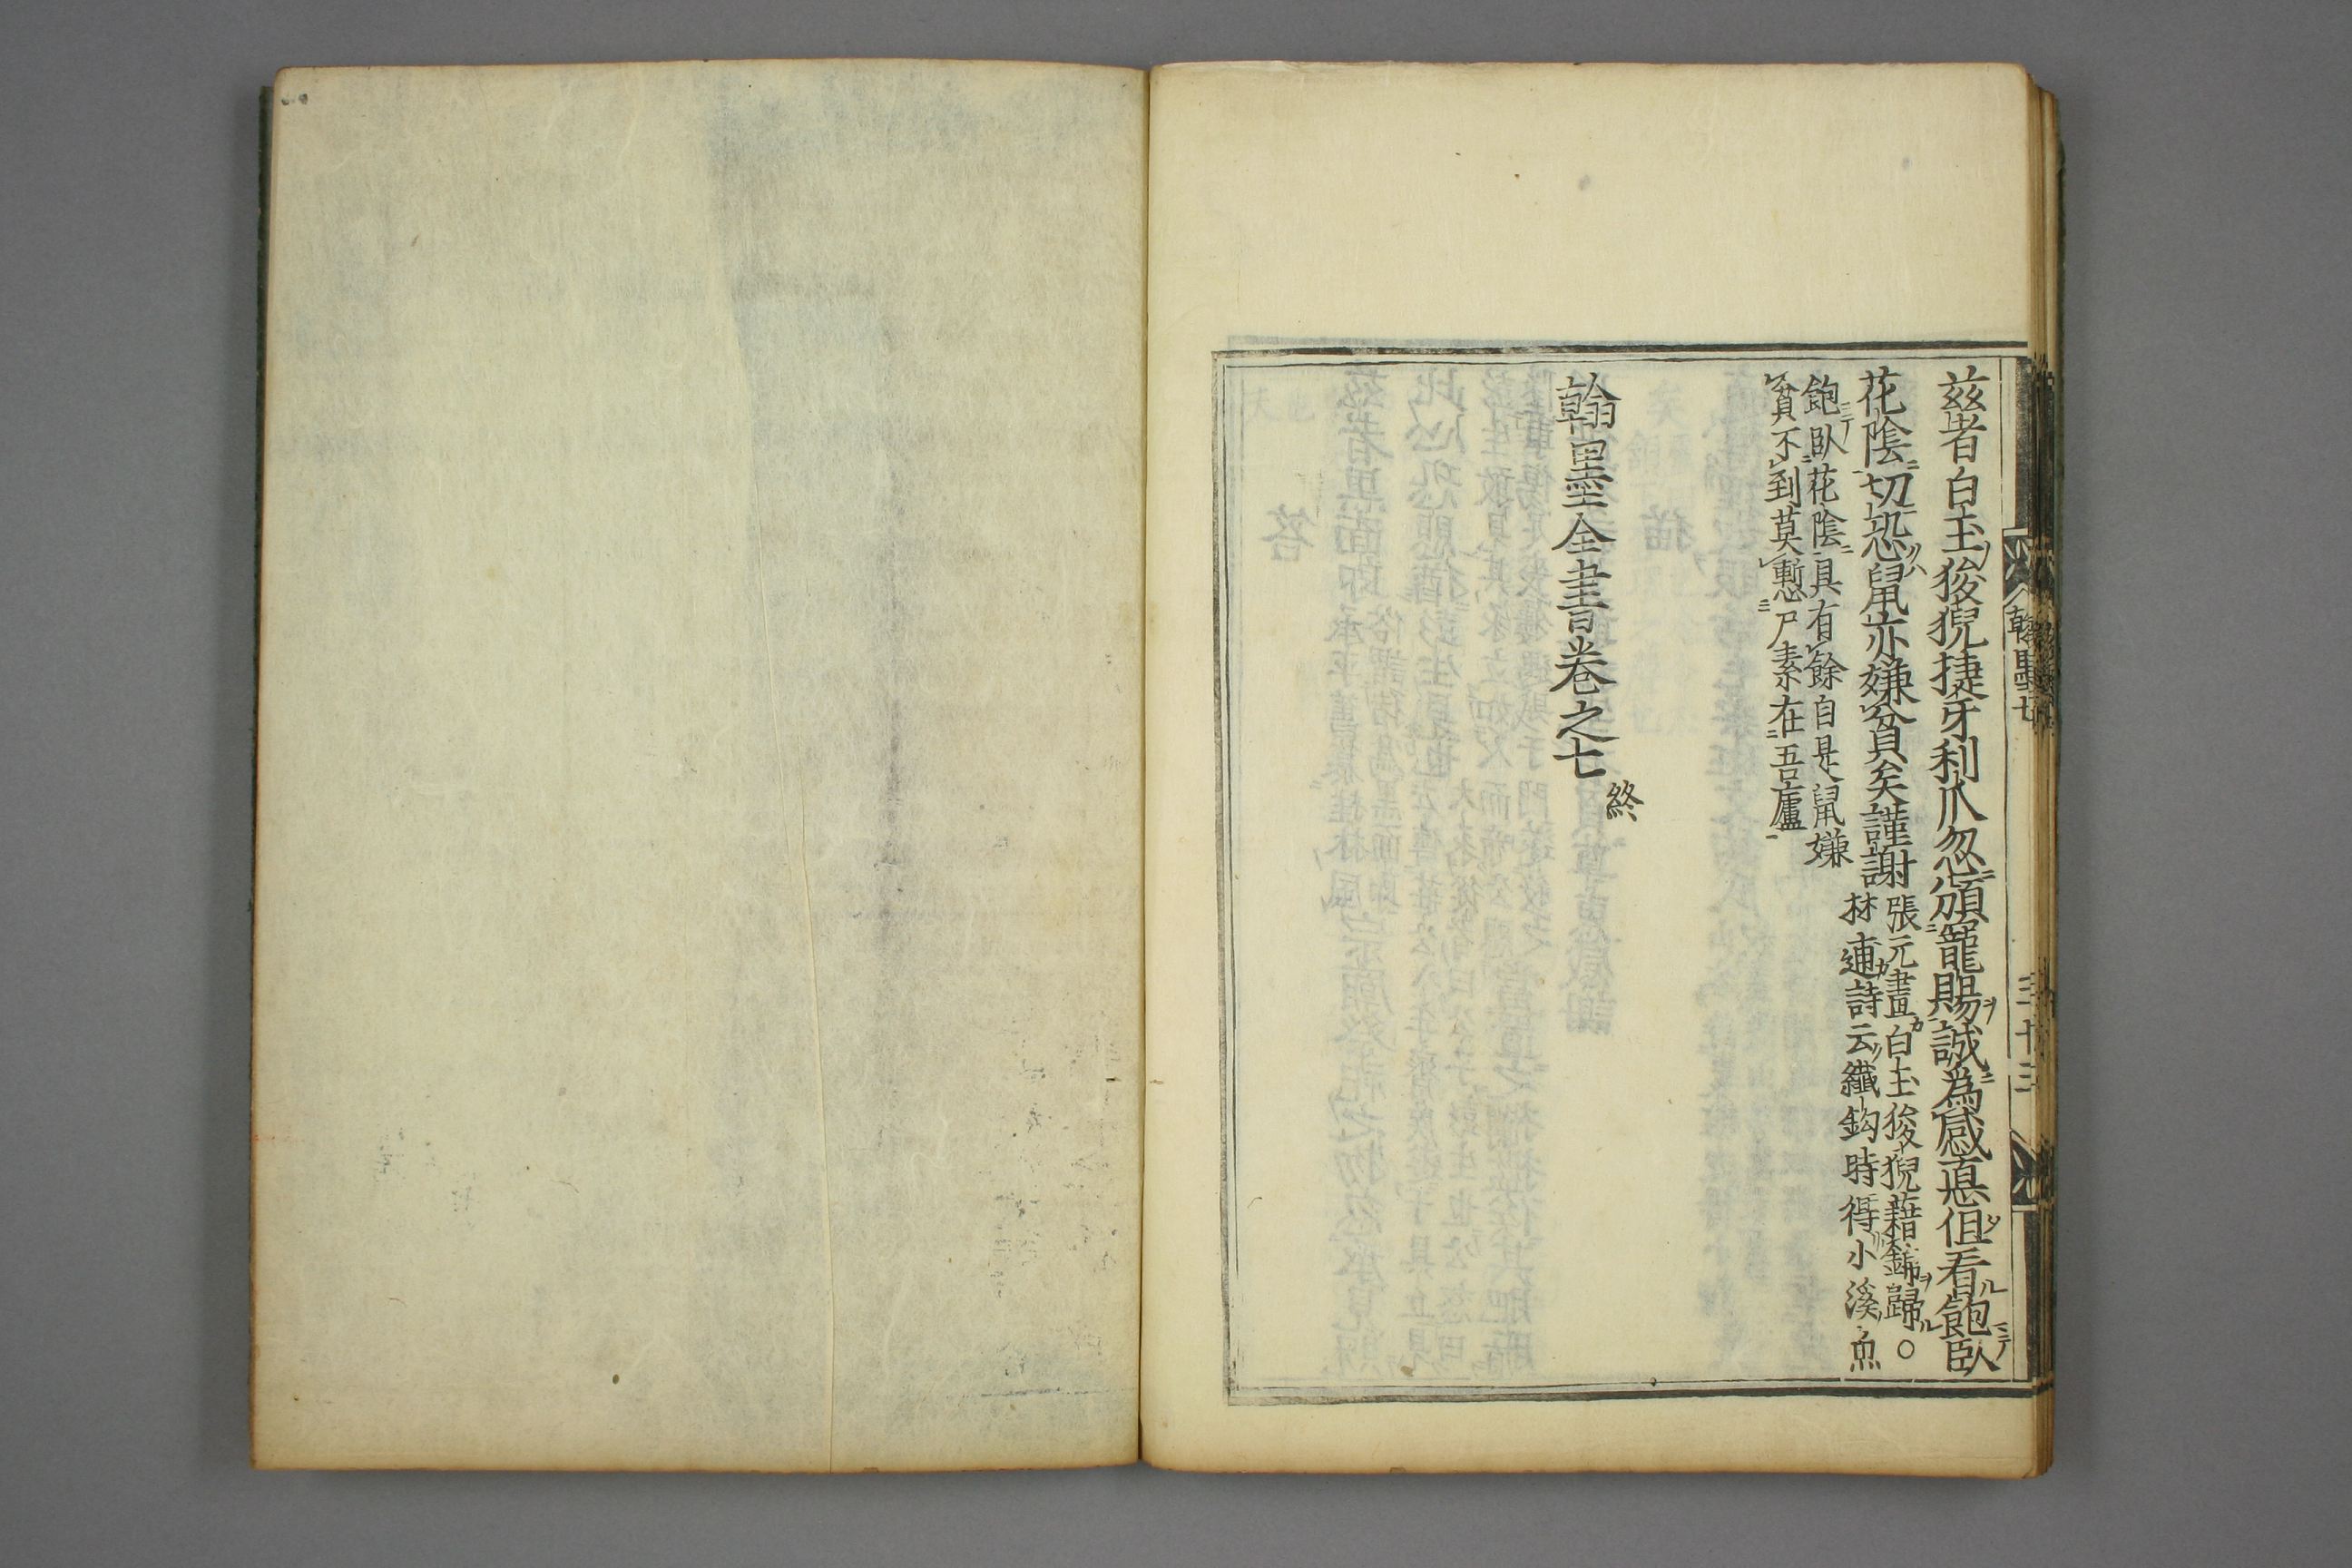 茲者白玉狻猊捷牙利爪忽頒籠賜誠為感恵但看飽臥
花陰切恐鼠亦嫌貧矣謹謝
張元畫白玉狻猊藉錦歸○
林逋詩云纖鈎時得小溪魚
飽臥花陰具有餘自是鼠嫌
貧不到莫慙尸素在吾廬
翰墨全書卷之七終
翰墨七
三十三